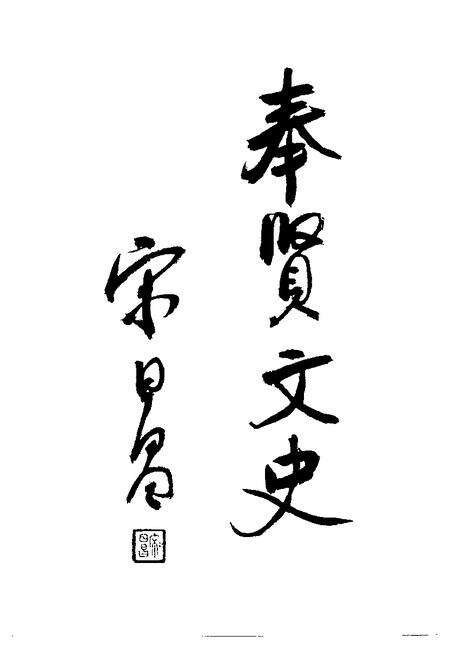 奉贤文史
宋日昌